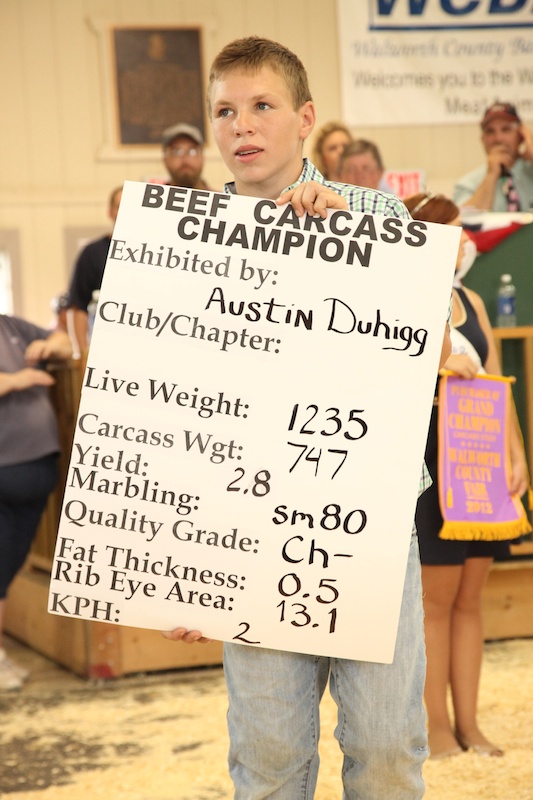 WCBA
Walworth County
Welcomes you to the
Meat
EXIT
BEEF CARCASS
CHAMPION
Exhibited by:
Austin Duhigg
Club/Chapter:
Live Weight: 1235
Carcass Wgt: 747
Yield: 2.8
Marbling: sm80
Quality Grade: Ch-
Fat Thickness: 0.5
Rib Eye Area: 13.1
KPH: 2
GRAND
CHAMPION
WALWORTH
COUNTY
FAIR
2012